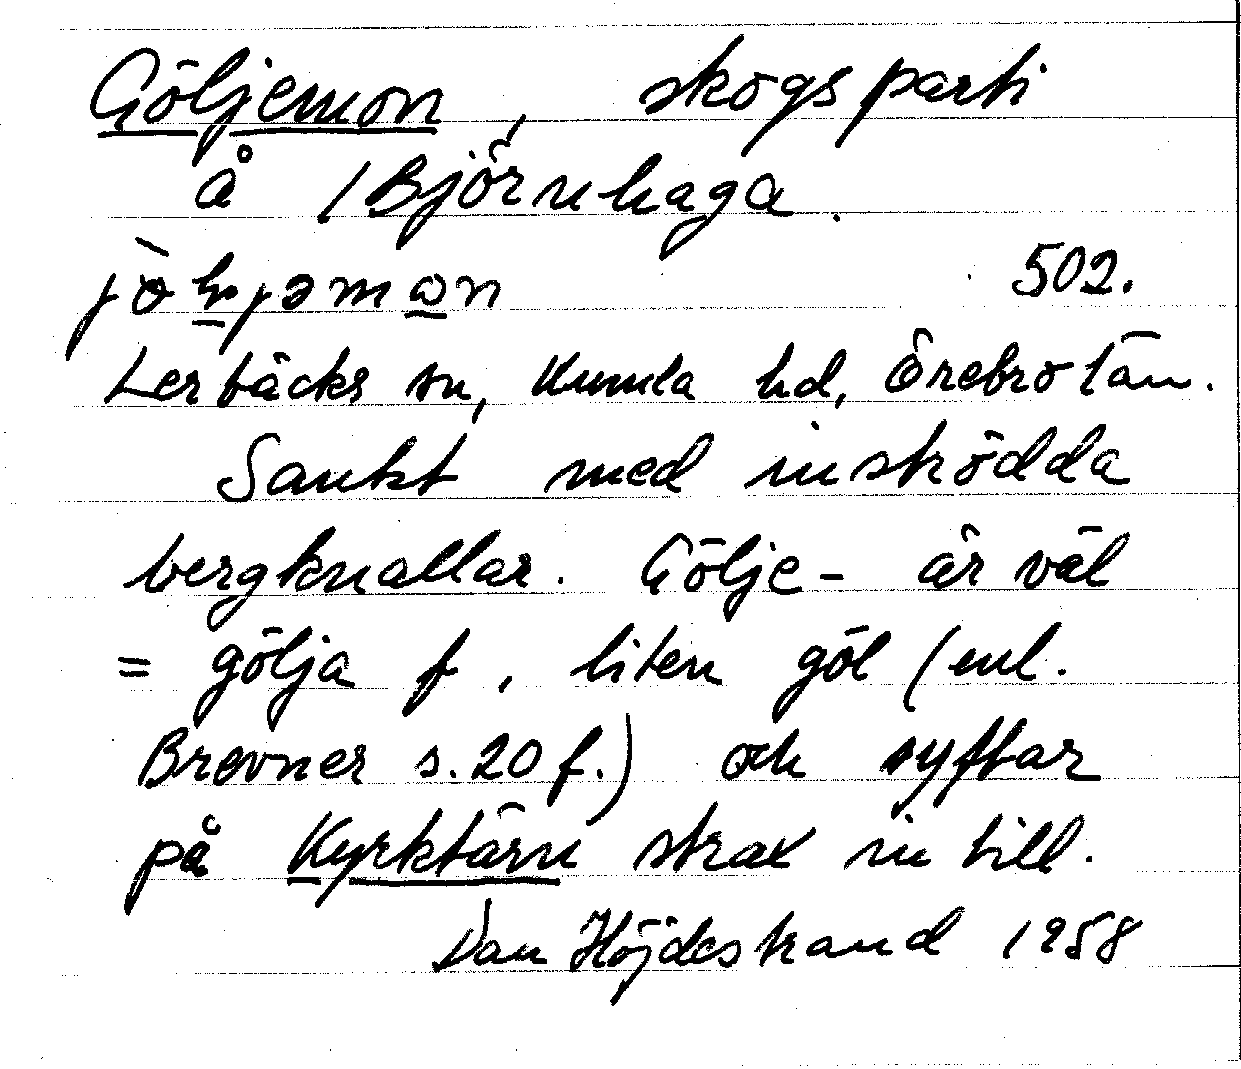 Göljemon, skogsparti
å /Björnhaga.
502.
Lerbäcks sn, Kumla hd, Örebro län.
Sankt med inströdda
bergknallar. Gölje- är väl
= gölja f, liten göl (enl.
Brevner s. 20 f.) och syftar
på Kyrktärn strax intill.
Dan Höjdestrand 1958